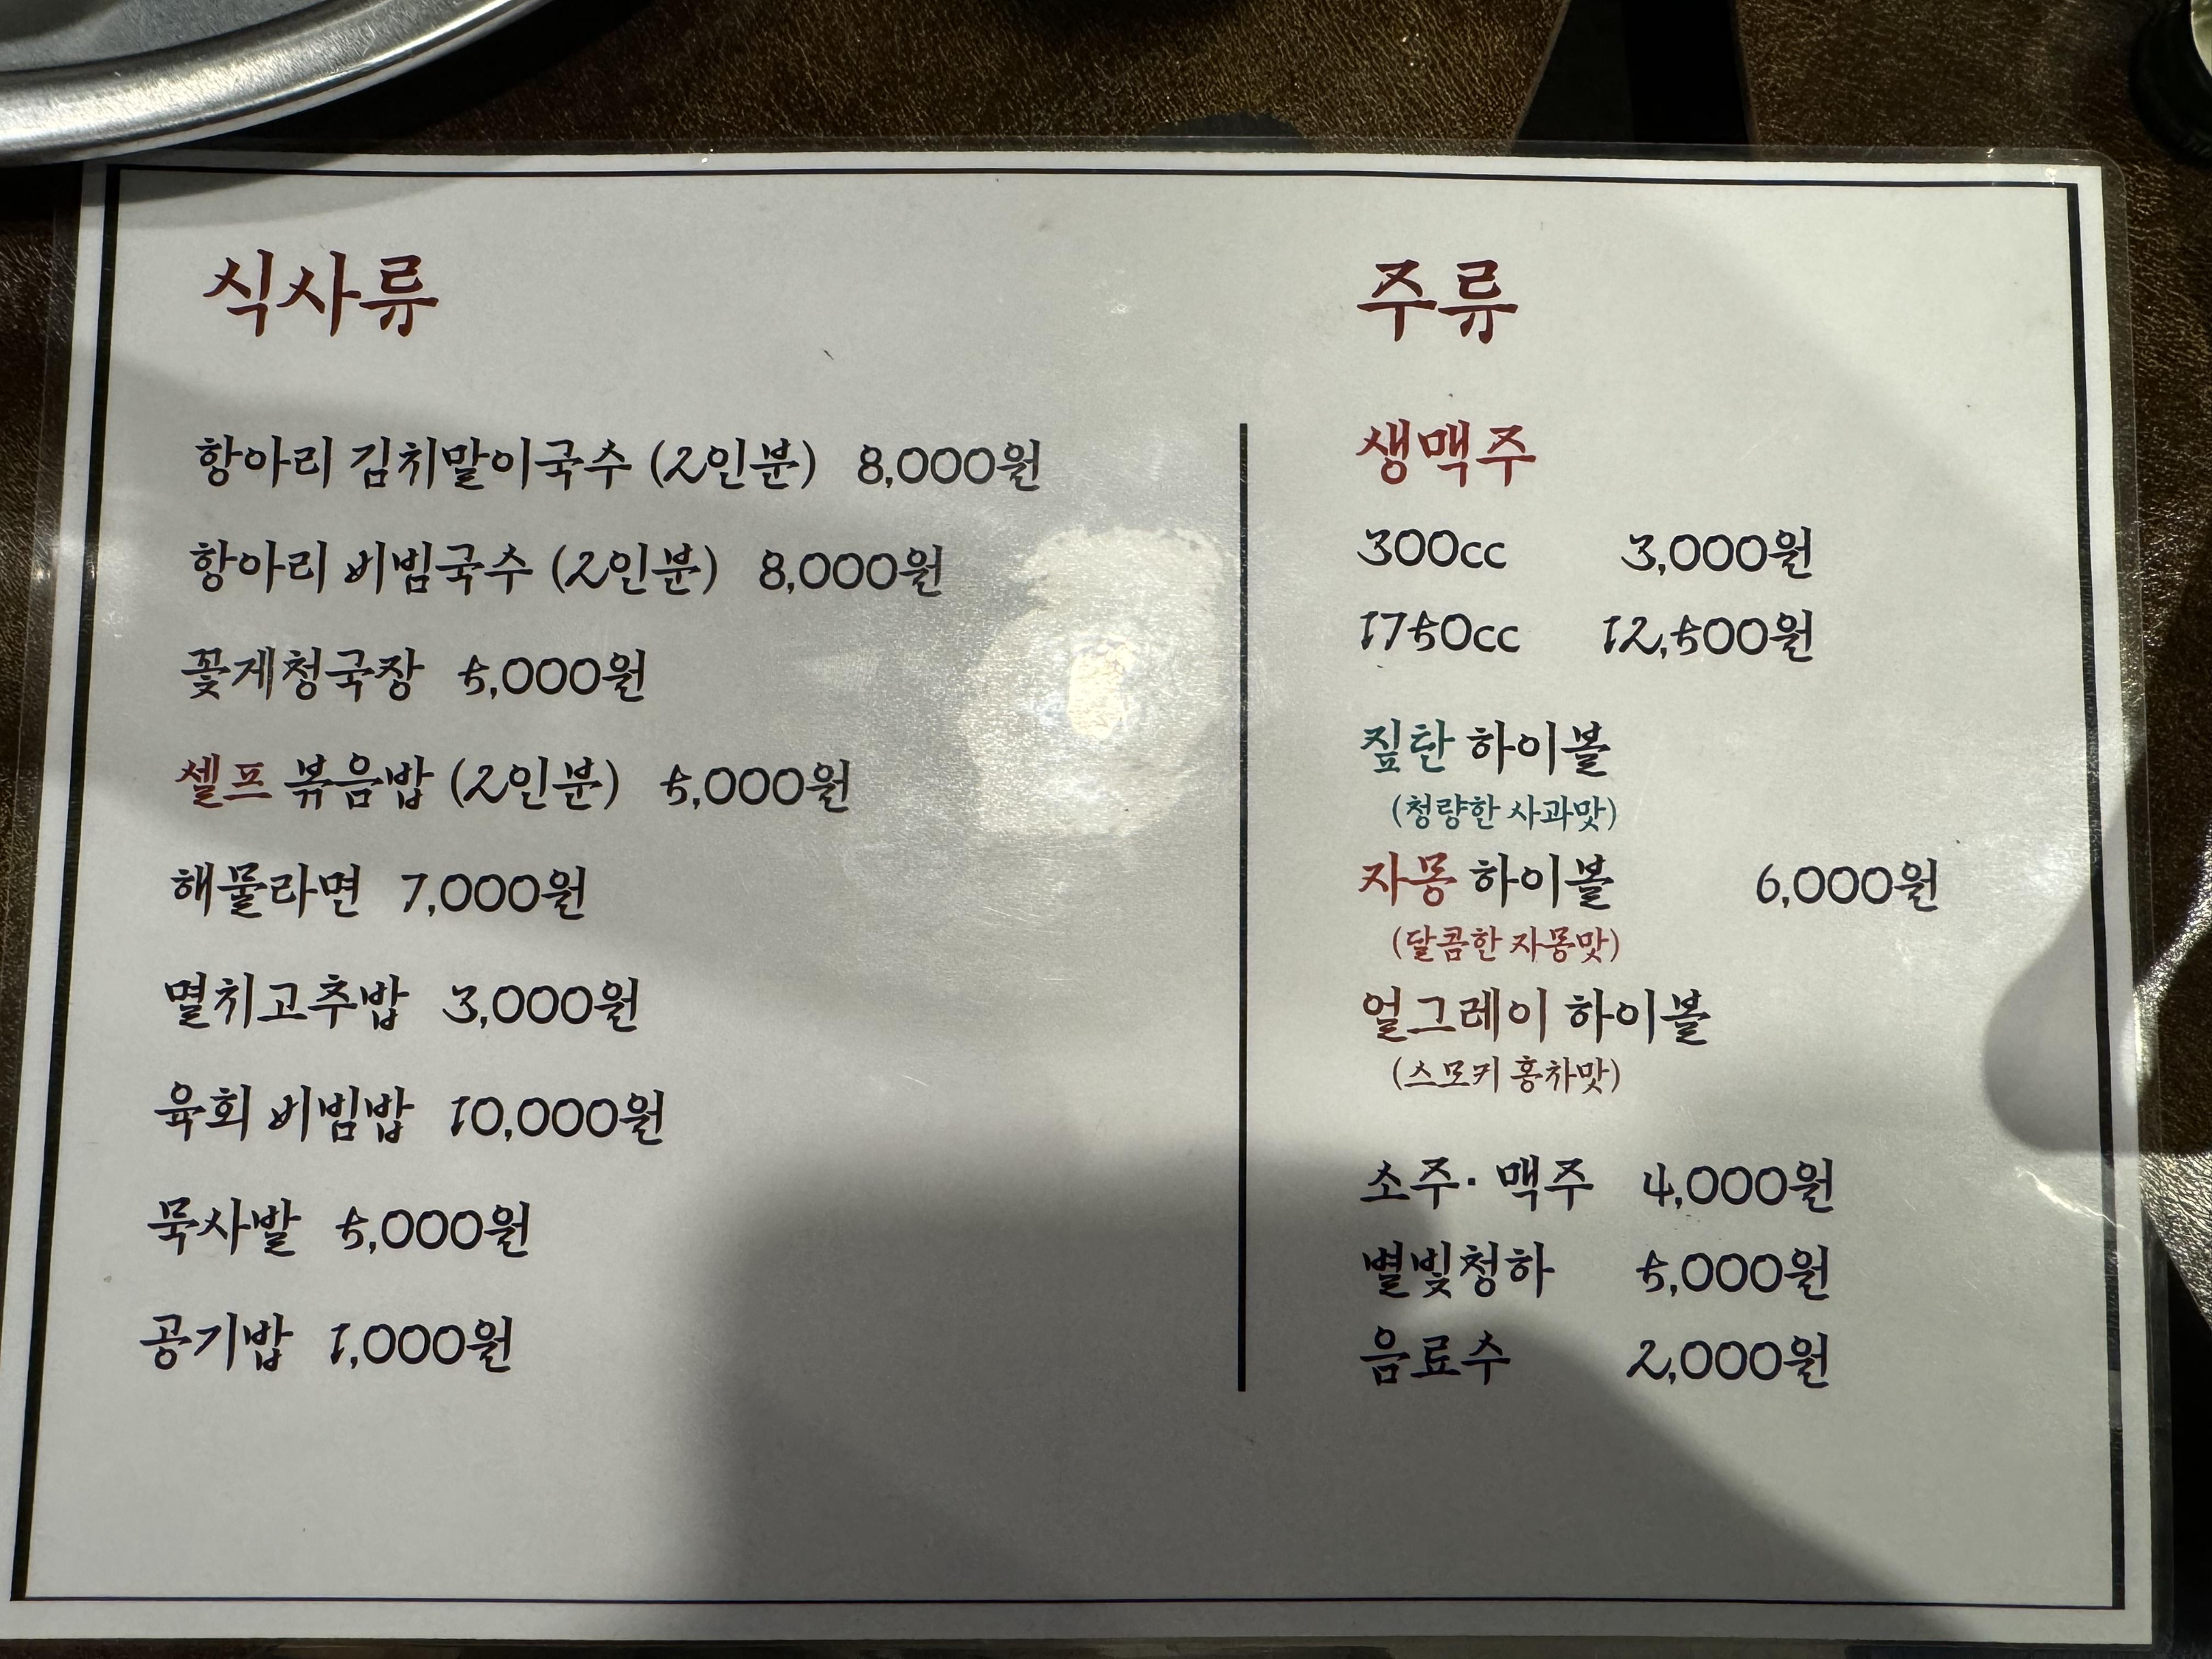 식사류
항아리 김치말이국수 (2인분) 8,000원
항아리 비빔국수 (2인분) 8,000원
꽃게청국장 5,000원
셀프 볶음밥 (2인분) 5,000원
해물라면 7,000원
멸치고추밥 3,000원
육회 비빔밥 10,000원
묵사발 5,000원
공기밥 1,000원
주류
생맥주
300cc 3,000원
1750cc 12,500원
짚탄 하이볼
(청량한 사과맛)
자몽 하이볼 6,000원
(달콤한 자몽맛)
얼그레이 하이볼
(스모키 홍차맛)
소주· 맥주 4,000원
별빛청하 5,000원
음료수 2,000원